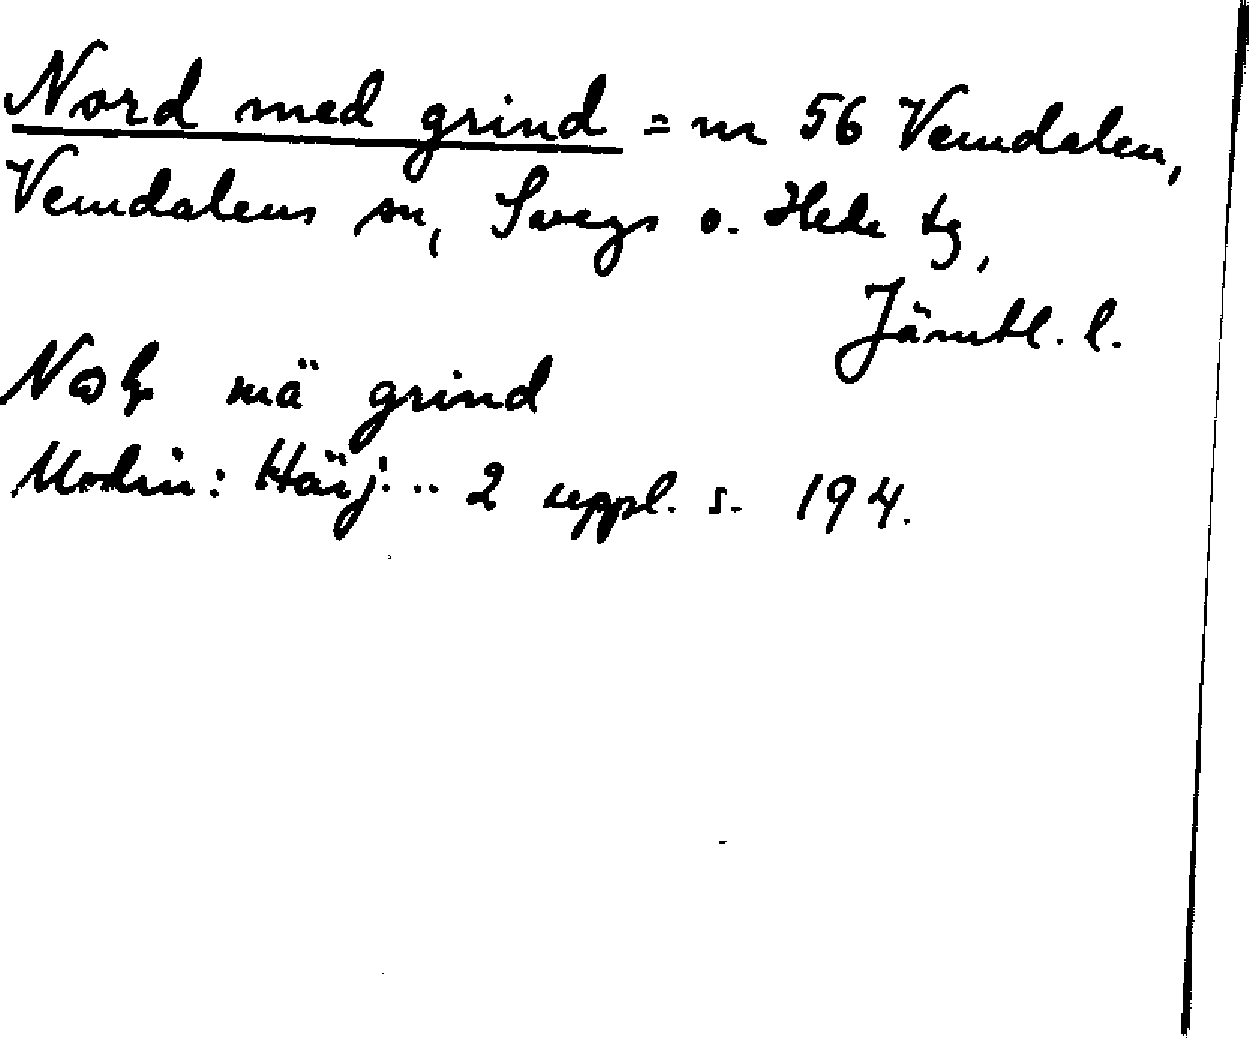 Nord med grind = nr 56 Vemdalen,
Vemdalens sn, Svegs o. Hede tg,
Jämtl. l.
mä grind
Modin: Härj... 2 uppl. s. 194.